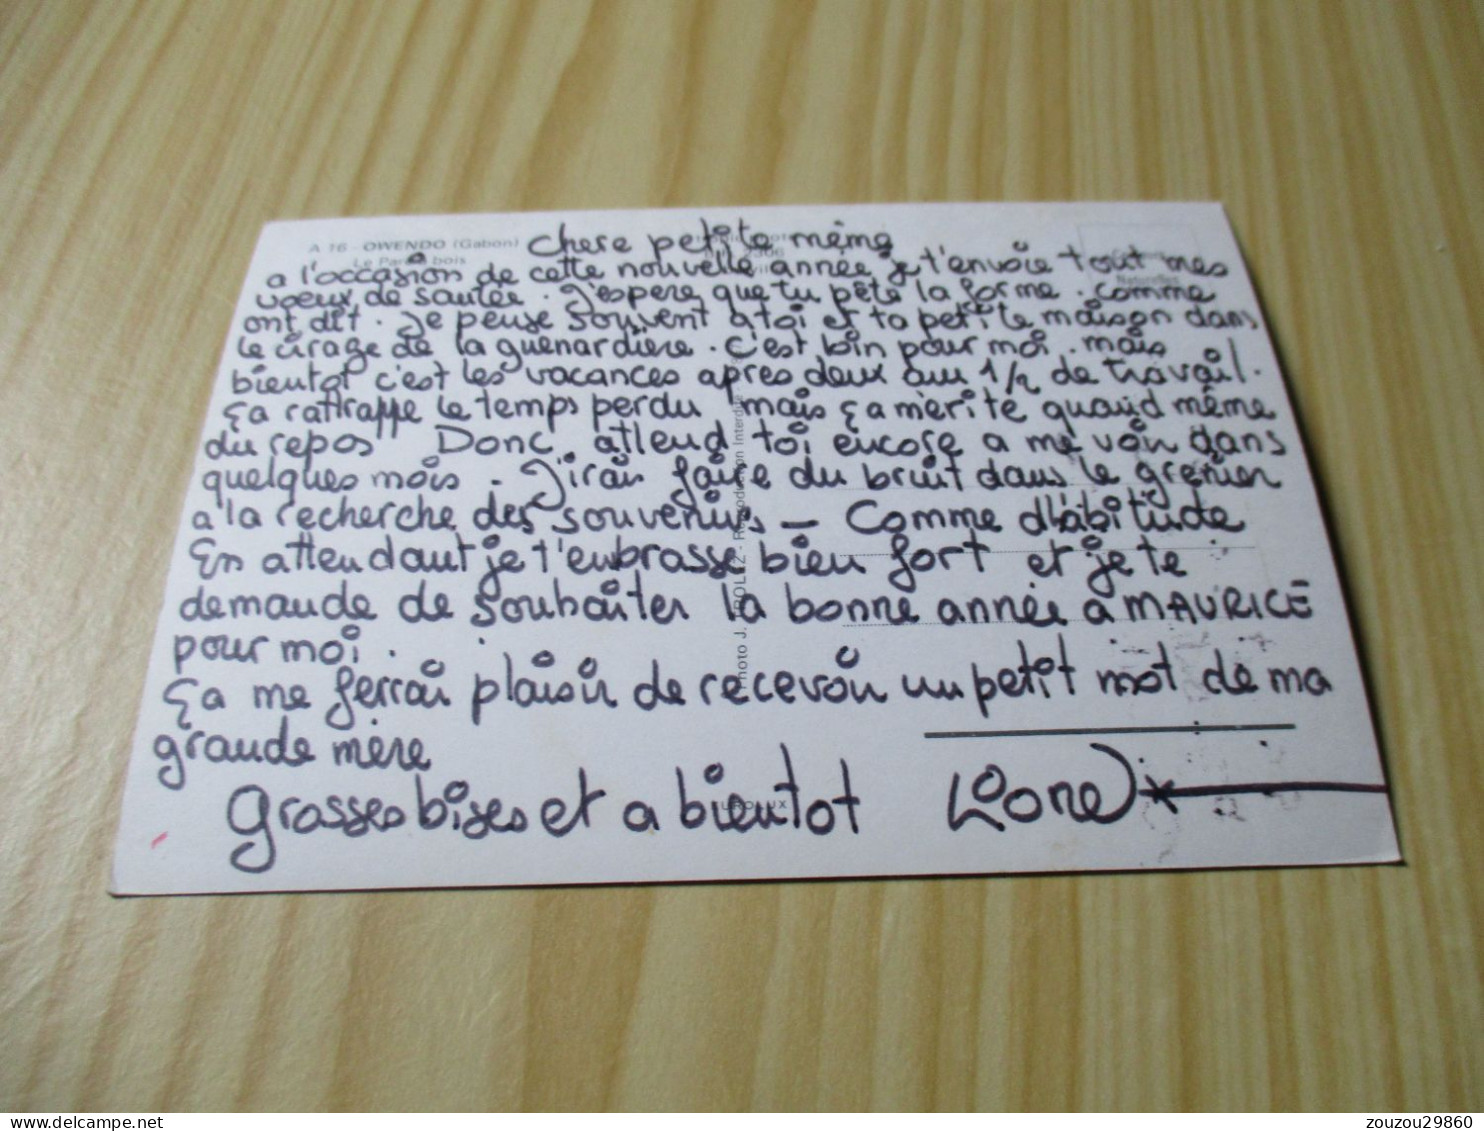 A 16 - OWENDO (Gabon)
Le Parc à bois
2306
chere petite mémé
a l'occasion de cette nouvelle année je t'envoie tout mes
voeux de santée. J'espere que tu pète la forme. comme
ont dit. Je pense souvent a toi et ta petite maison dans
le virage de la guenardiere. c'est bin pour moi. mais
bientot c'est les vacances apres deux ans 1/2 de travail.
ça rattrappe le temps perdu mais ça merite quand même
du repos Donc attend toi encore a me voir dans
quelques mois. J'irai faire du bruit dans le grenier
a la recherche des souvenirs - Comme d'abitude
En attendant je t'enbrasse bien fort et je te
demande de souhaiter la bonne année a MAURICE
pour moi.
ça me ferrai plaisir de recevoir un petit mot de ma
grande mère
grosses bises et a bientot Lione
Photo J. TROLEZ - Reproduction Interdite
zouzou29860
delcampe.net